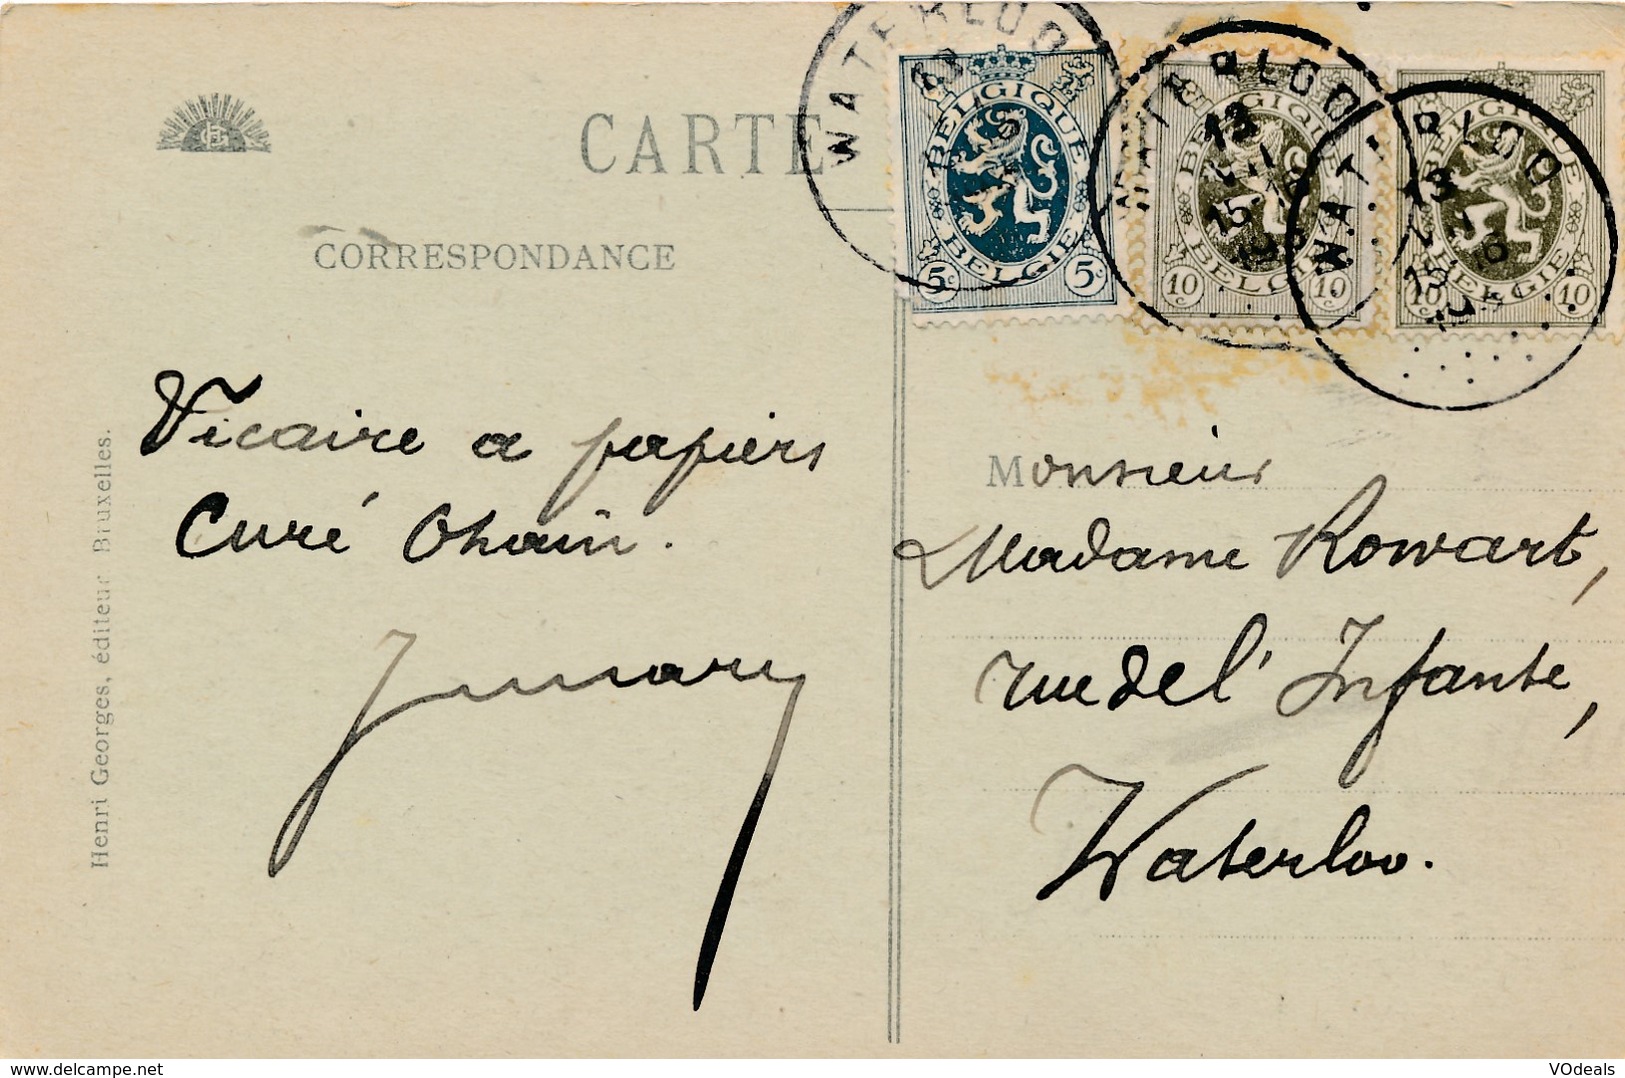 CARTE
CORRESPONDANCE
WATERLOO
13
BELGIQUE
5c 5c
BELGIE
WATERLOO
13
VII
15
BELGIQUE
10c 10c
BELGIE
WATERLOO
13
15
BELGIQUE
10c 10c
BELGIE
Vicaire a papiers
Curé Ohain.
Henri Georges, éditeur Bruxelles.
Monsieur
Madame Rowart,
rue de l' Infante,
Waterloo.
www.delcampe.net
VOdeals